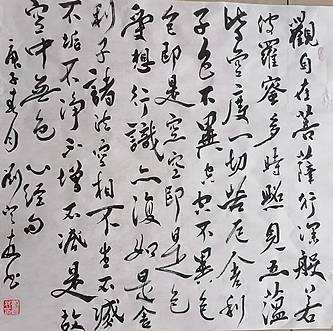 觀自在菩薩行深般若
波羅蜜多時照見五蘊
皆空度一切苦厄舍利
子色不異空空不異色
色即是空空即是色
受想行識亦復如是舍
利子諸法空相不生不滅
不垢不净不增不减是故
空中無色 心經句
庚子春月